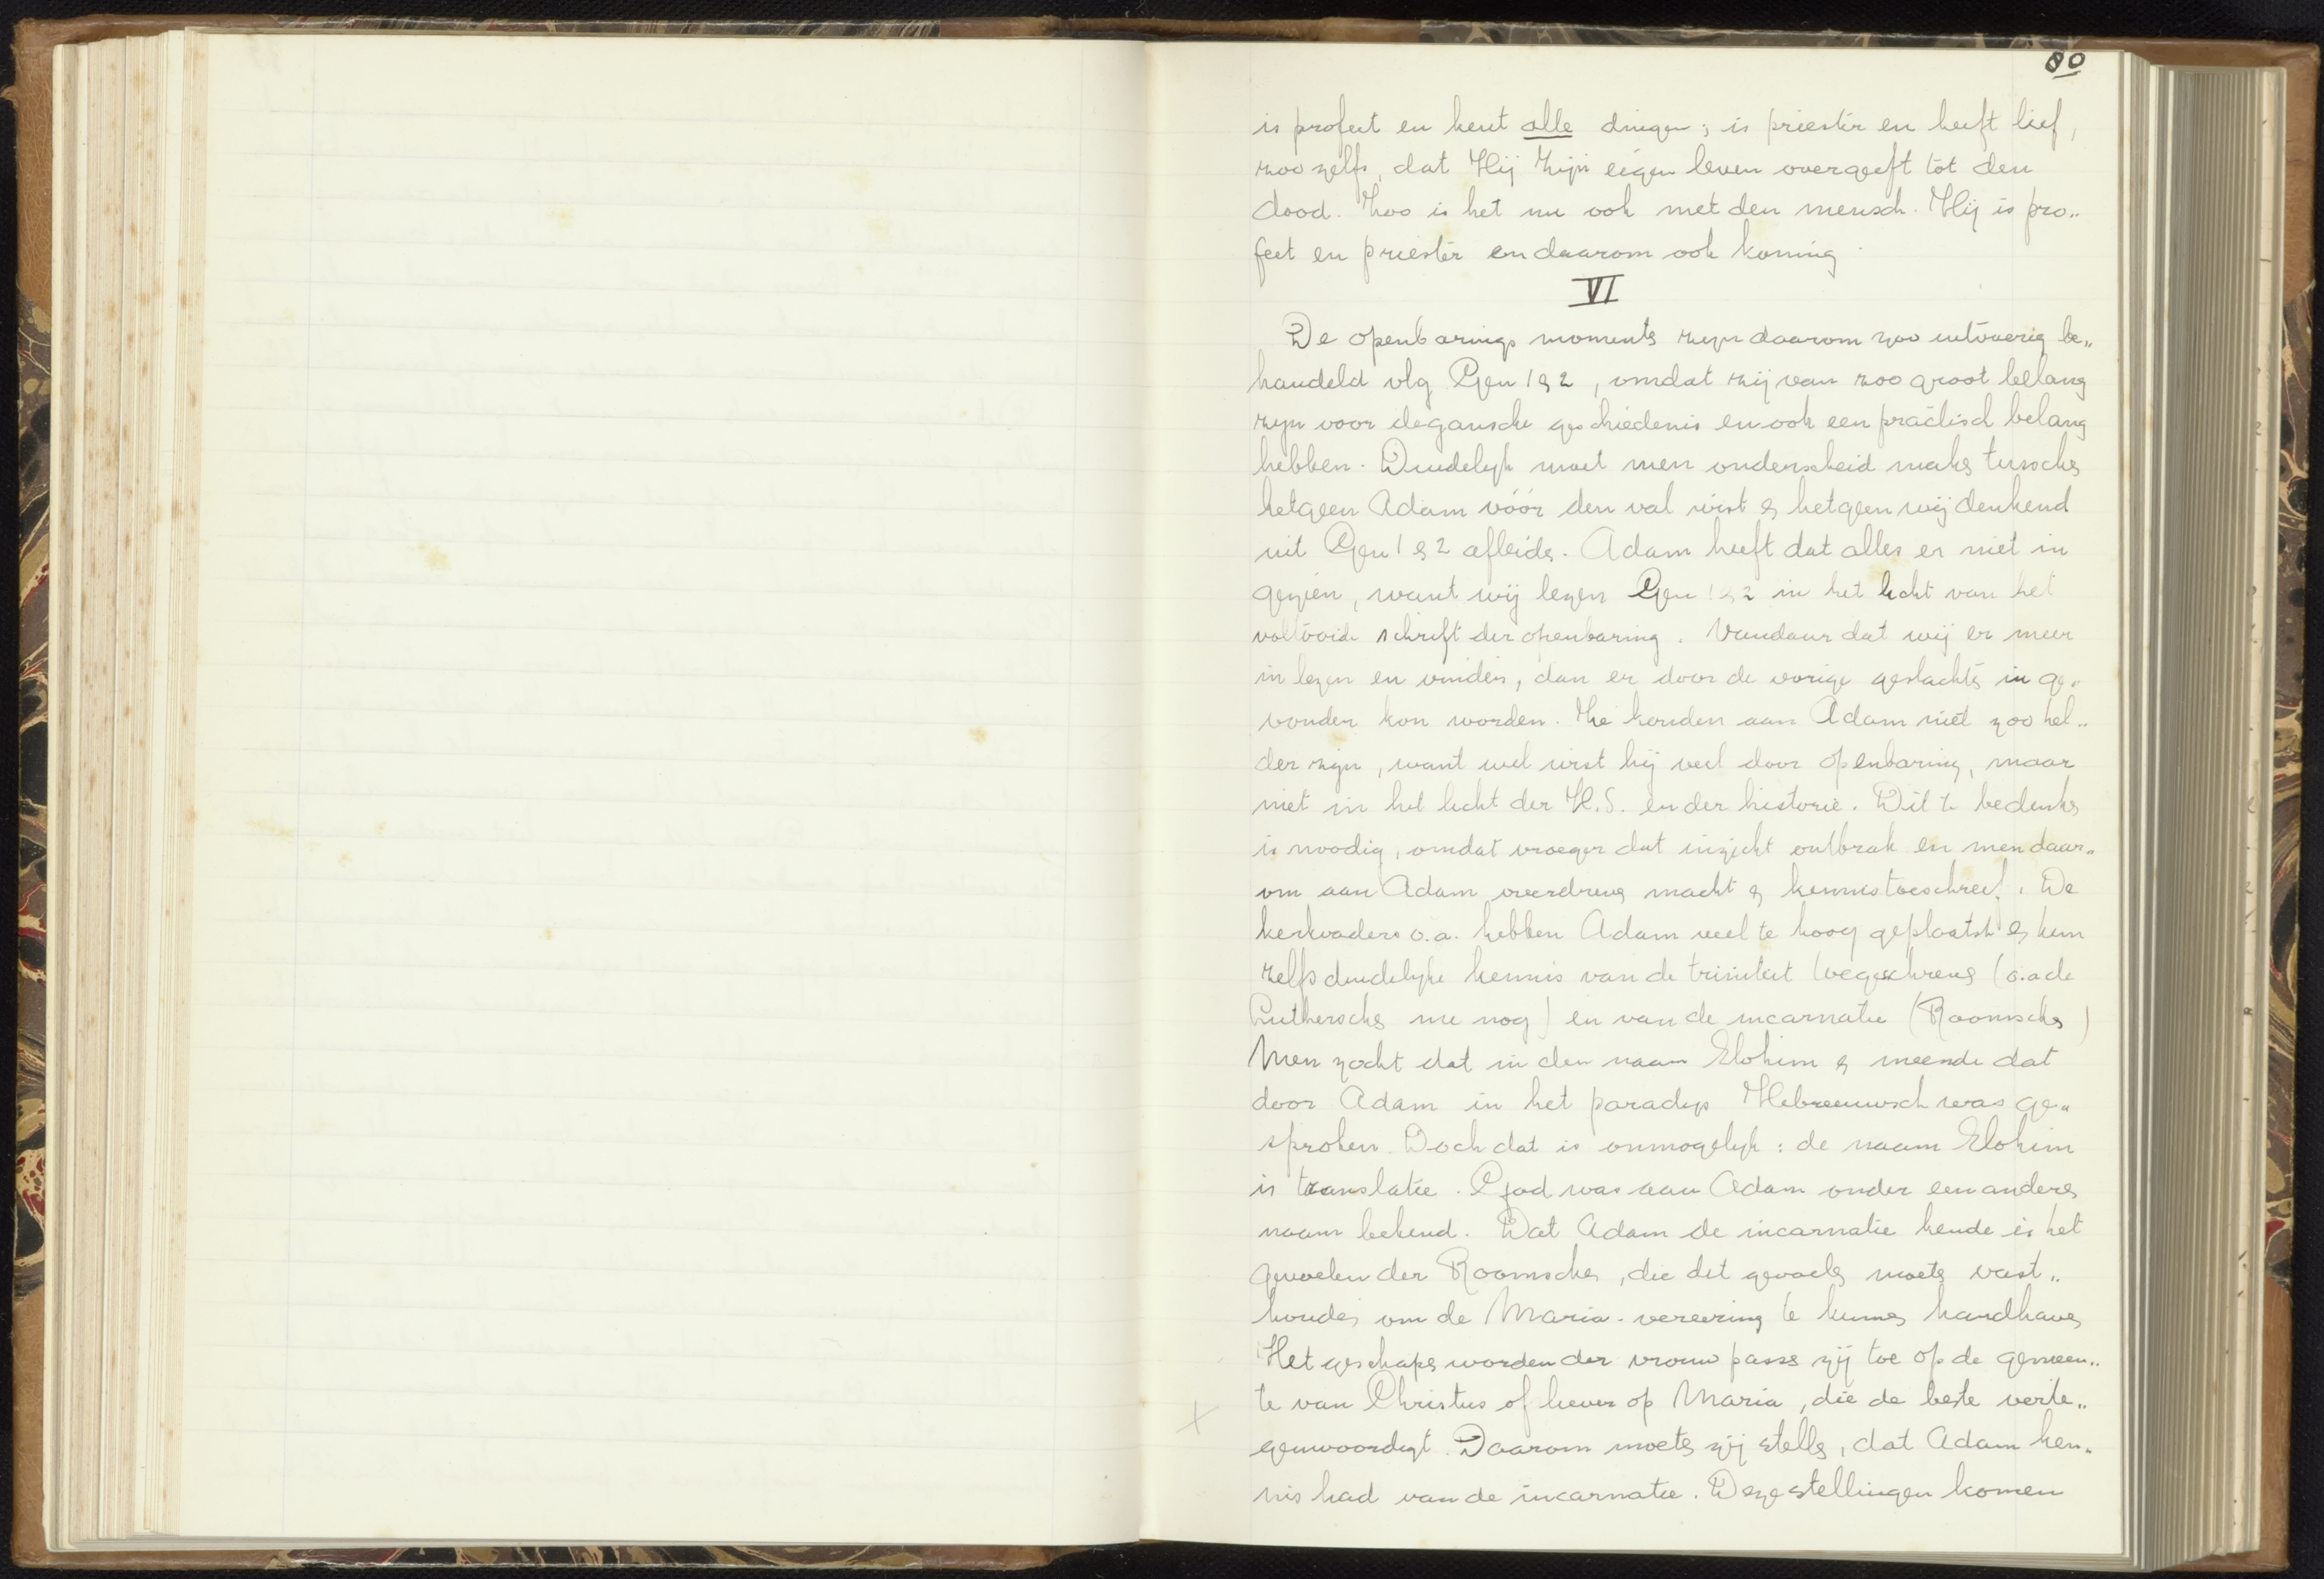 80
is profeet en kent alle dingen; is priester en heeft lief,
zoo zelfs, dat Hij Zijn eigen leven overgeeft tot den
dood. Zoo is het nu ook met den mensch. Hij is pro„
feet en priester en daarom ook koning.
VI
De openbarings momenten zijn daarom zoo uitvoerig be„
handeld vlg Gen 1 & 2, omdat zij van zoo groot belang
zijn voor de gansche geschiedenis en ook een practisch belang
hebben. Duidelijk moet men onderscheid maken tusschen
hetgeen Adam vóór den val wist & hetgeen wij denkend
uit Gen 1 & 2 afleiden. Adam heeft dat alles er niet in
gezien, want wij lezen Gen 1 & 2 in het licht van het
voltooide schrift der openbaring. Vandaar dat wij er meer
in lezen en vinden, dan er door de vorige geslachten in ge„
vonden kon worden. Ze konden aan Adam niet zoo hel„
der zijn, want wel wist hij veel door openbaring, maar
niet in het licht der H.S. en der historie. Dit te bedenken
is noodig, omdat vroeger dat inzicht ontbrak en men daar„
om aan Adam overdreven macht & kennis toeschreef. De
kerkvaders o.a. hebben Adam veel te hoog geplaatst & hem
zelfs duidelijke kennis van de triniteit toegeschreven (o.a de
Lutherschen nu nog) en van de incarnatie (Roomschen)
Men zocht dat in den naam Elohim & meende dat
door Adam in het paradijs Hebreeuwsch was ge„
sproken. Doch dat is onmogelijk: de naam Elohim
is translatie. God was aan Adam onder een anderen
naam bekend. Dat Adam de incarnatie kende is het
gevoelen der Roomschen, die dit gevoelen moeten vast„
houden om de Maria-vereering te kunnen handhaven
Het geschapen worden der vrouw passen zij toe op de gemeen„
te van Christus of liever op Maria, die de beste verte„
genwoordigt. Daarom moeten zij stellen, dat Adam ken„
nis had van de incarnatie. Deze stellingen komen